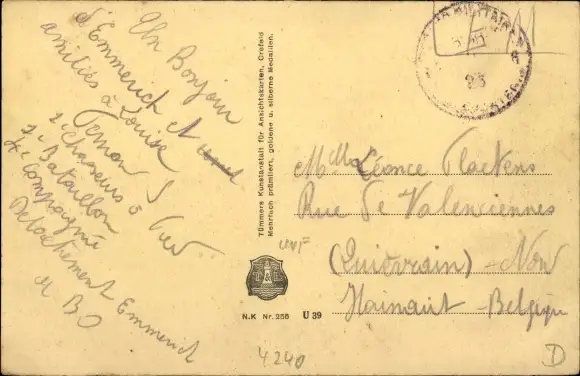 Un Bonjour
d'Emmerich et
amitiés à Louise
Simon J
2e chasseurs à Pied
2e Bataillon
7e Compagnie
Detachement Emmerich
A B O
Tümmers Kunstanstalt für Ansichtskarten, Crefeld
Mehrfach prämiiert, goldene u. silberne Medaillen.
N.K Nr. 256 U 39
4240
MILITAIR
23
Mlle Léonce Plackens
Rue de Valenciennes
(Quiévrain) - Nord
Hainaut - Belgique
D